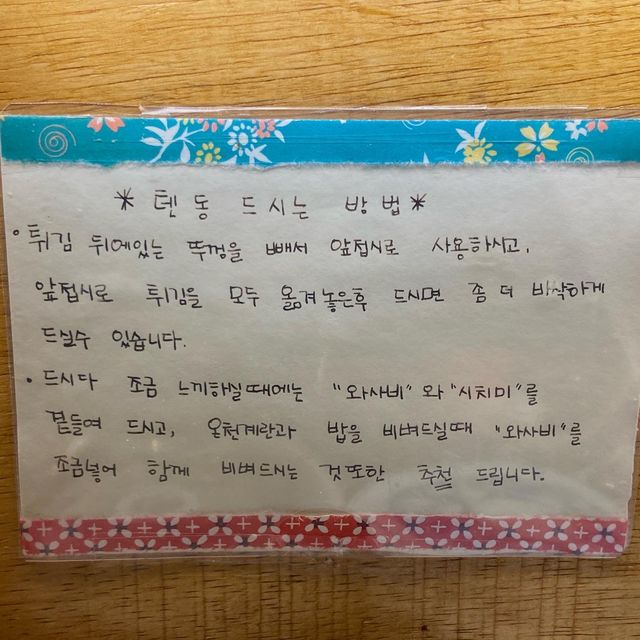 * 텐동 드시는 방법 *
• 튀김 뒤에있는 뚜껑을 빼서 앞접시로 사용하시고,
앞접시로 튀김을 모두 옮겨놓은후 드시면 좀 더 바삭하게
드실수 있습니다.
• 드시다 조금 느끼하실때에는 "와사비"와 "시치미"를
곁들여 드시고, 온천계란과 밥을 비벼드실때 "와사비"를
조금넣어 함께 비벼드시는 것또한 추천 드립니다.